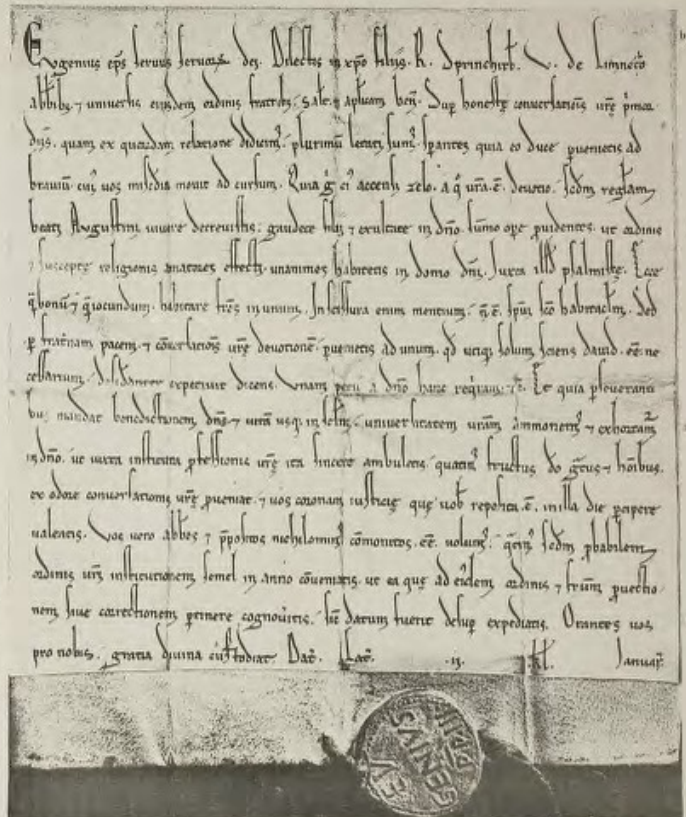 Eugenius eps servus servoꝝ dei. Dilectis in xpo filiis. R. Sprinchirb. V. de
abbibꝫ ⁊ universis eiusdem ordinis fratribꝫ. Salt. ⁊ aplicam ben. Sup honeste conversationis vrę
diis. quam ex quorundam relatione didicimꝰ. plurimū letati sumꝰ. sperantes quia eo duce pervenietis ad
bravium. cuiꝰ vos misc̄dia movit ad cursum. Quia g̊ eiꝰ accensi zelo. a q̊ vr̄a. ē. devotio. scd̄m reglam
beati Augustini vivere decrevistis. gaudete filii ⁊ exultate in dn̄o. sūmo ope pvidentes. ut ordinis
⁊ susceptę religionis amatores effecti. unanimes habitetis in domo dn̄i. Juxta illd psalmistę. Ecce
q̄ bonū ⁊ q̄ iocundum. habitare frēs in unum. In scissura enim mentium. n̄. ē. spui sc̄o habitaclm. Sed
p fratnam pacem. ⁊ cōversationis vrę devotionē. pvenietis ad unum. qd̄ utiqꝫ solum sciens david. eē. ne
cessarium. desidanter expetivit dicens. Unam petii a dn̄o hanc reqram. ⁊c̄. Et quia pseveranti
bus mandat benedictionem dn̄s. ⁊ vitā usqꝫ in sclm. universitatem vram ām̄onemꝰ ⁊ exhortamꝰ
in dn̄o. ut iuxta instituta pfessionis vrę ita sincere ambuletis. quatinꝰ fructus do gtus ⁊ hoībus.
ex odore conversationis vrę pveniat. ⁊ vos coronam iusticię quę vob reposita. ē. in illa die pcipere
valeatis. Vos vero abbes ⁊ ppositos nichilominꝰ cōmonitos. eē. volumꝰ. qtinꝰ scd̄m pbabilem
ordinis vri institutionem semel in anno cōveniatis. ut ea quę ad eiꝰdem ordinis ⁊ frum pvectio
nem sive correctionem ptinere cognovitis. sic̄ datum fuerit desup expediatis. Orantes vos
pro nobis. gratia divina custodiat. Dat. Lat. .II. kl. Januar.
EVGENIVS PP III